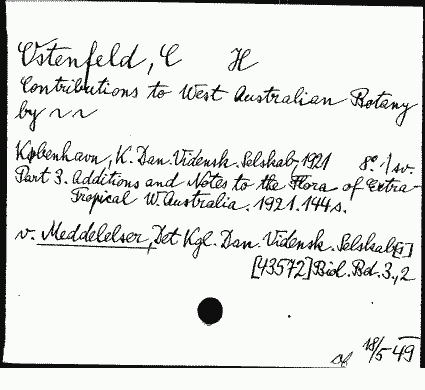 Ostenfeld, C H
Contributions to West Australian Botany
by ~ ~
København, K. Dan. Vidensk. Selskab, 1921 8:o 1 sv.
Part 3. Additions and Notes to the Flora of Extra-
Tropical W. Australia. 1921. 144 s.
v. Meddelelser, Det Kgl. Dan. Vidensk. Selskab[s]
[43572] Biol. Bd. 3, 2
18/5 49